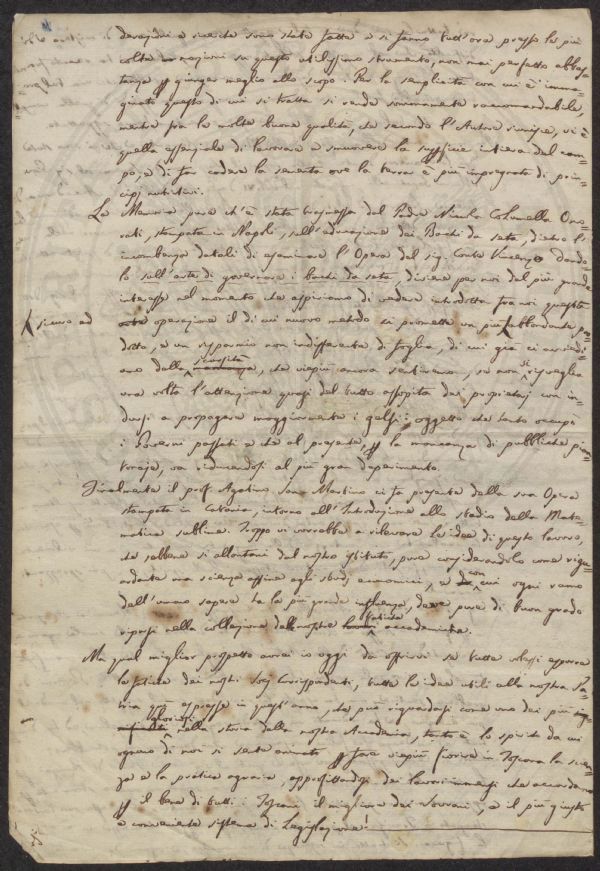 derazioni e ricerche sono state fatte e si fanno tutt'ora presso le più
colte nazioni su questo utilissimo strumento, non mai perfetto abbas
tanza giunger meglio allo scopo: Per la semplicità con cui è imma
ginato questo di cui si tratta si rende sommamente raccomandabile,
mentre fra le molte buone qualità, che secondo l'Autore riunisce, vi è
quella essenziale di lavorare e smuovere la superficie intiera del cam
po, e di far cadere la sementa ove la terra è più impregnata di prin
cipj nutritivi.
La Memoria pure ch'è stata trasmessa dal Padre Nicola Columella Ono
rati, stampata in Napoli, sull'educazione dei Bachi da seta, dietro l'
incombenza datali di esaminare l'Opera del sig. Conte Vincenzo Dando
lo sull'arte di governare i bachi da seta, diviene per noi del più grande
interesse nel momento che aspiriamo di vedere introdotta fra noi questa
sicuro ed
operazione il di cui nuovo metodo ci promette un più abbondante pro
dotto, e un risparmio non indifferente di foglia, di cui già ci avvedi
amo della scarsità, che viepiù ancora sentiremo, se non si risveglia
una volta l'attenzione quasi del tutto assopita dei proprietarj con in
dursi a propagare maggiormente i gelsi: oggetto che tanto occupò
i Governi passati e che al presente, la mancanza di pubbliche pian
tonaje, va riducendosi al più gran deperimento.
Finalmente il prof. Agatino San Martino ci fa presente della sua Opera
stampata in Catania, intorno all'Introduzione allo studio della Mate
matica sublime. Troppo vi vorrebbe a rilevare le idee di questo lavoro,
che sebbene si allontani dal nostro istituto, pure considerandolo come rigu
ardante una scienza affine agli studj economici, e con cui ogni ramo
dell'umano sapere ha la più grande influenza, deve pure di buon grado
riporsi nella collezione delle nostre fatiche accademiche.
Ma qual miglior prospetto avrei io oggi da offrirvi se tutte volessi esporre
le fatiche dei nostri Socj Corrispondenti, tutte le idee utili alla nostra Pa
tria espresse in quest'anno, che può riguardarsi come uno dei più
gloriosi nella storia della nostra Accademia, tanto è lo spirito da cui
ognuno di noi si sente animato far viepiù fiorire in Toscana la scien
za e la pratica agraria, approfittandosi dei favori immensi che accordano
il bene di tutti i Toscani il migliore dei Sovrani, e il più giusto
e conveniente sistema di Legislazione!